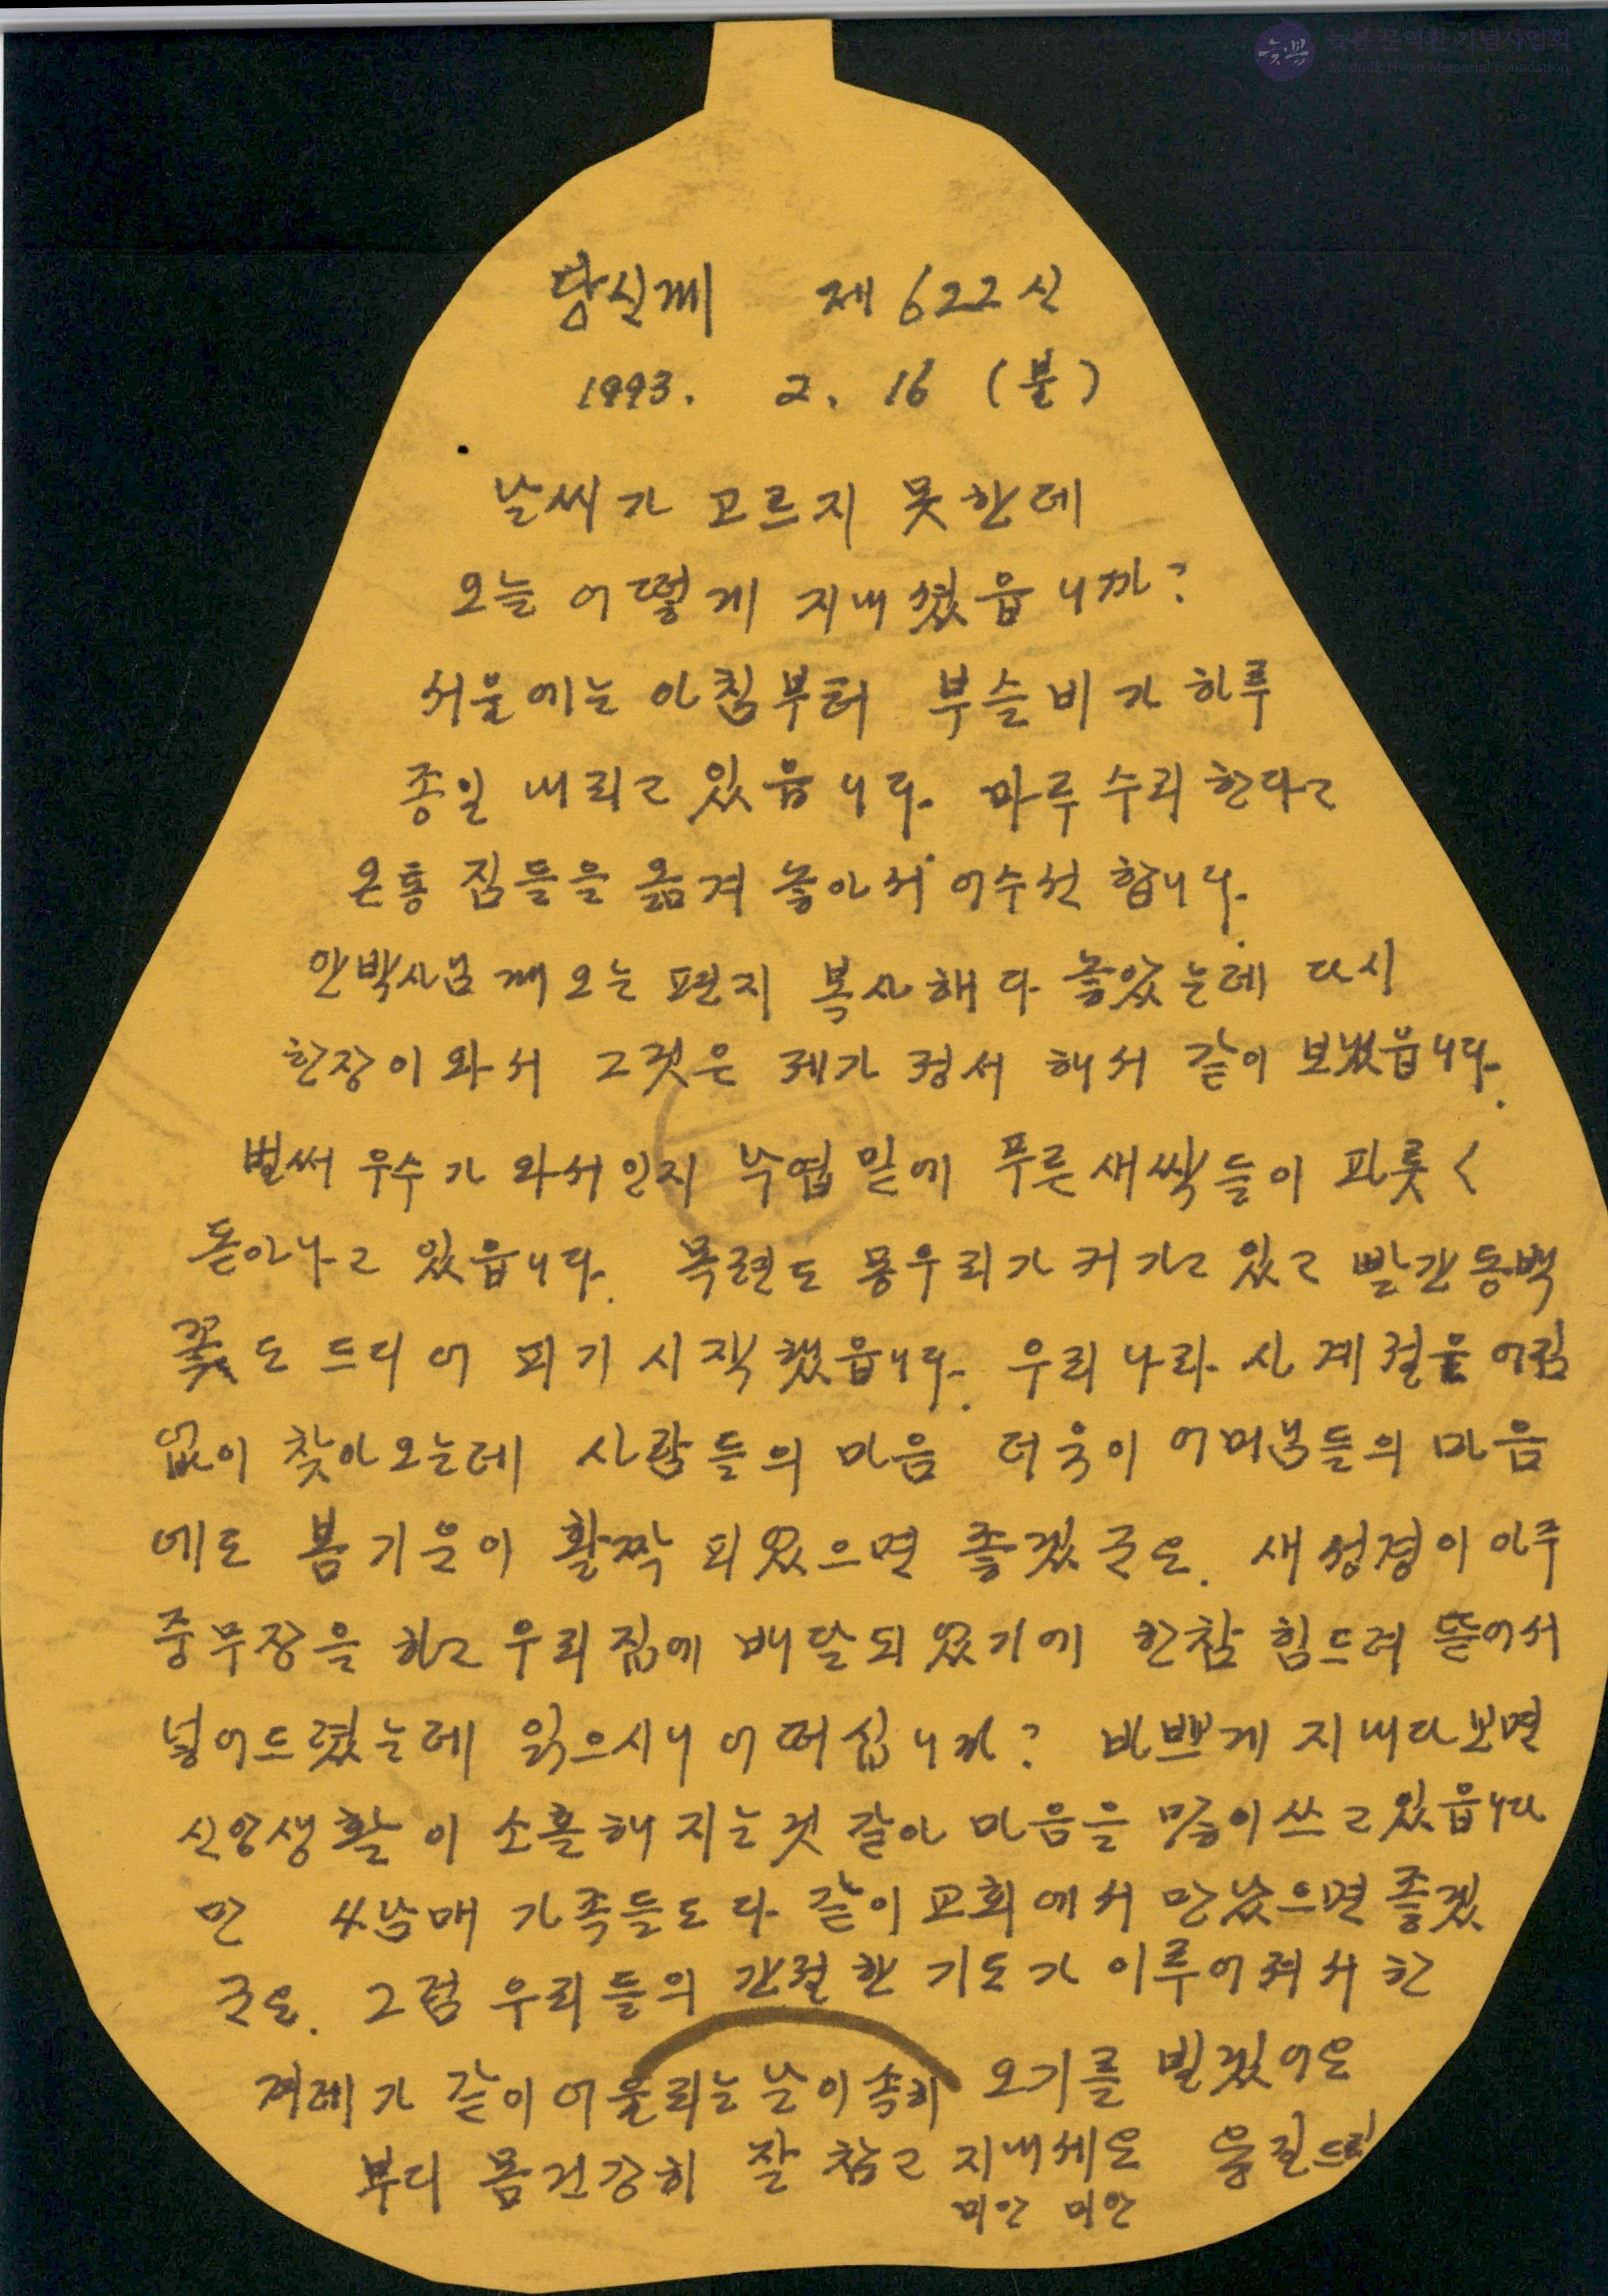 늦봄 문익환 기념사업회
Moon Ik Hwan Memorial Foundation
당신께 제 622신
1993. 2. 16 (불)
날씨가 고르지 못한데
오늘 어떻게 지내셨읍니까?
서울에는 아침부터 부슬비가 하루
종일 내리고 있읍니다. 마루 수리한다고
온통 짐들을 옮겨 놓아서 어수선 합니다.
안박사님께 오는 편지 복사해다 놓았는데 다시
한장이 와서 그것은 제가 정서 해서 같이 보냈읍니다.
벌써 우수가 와서인지 낙엽 밑에 푸른 새싹들이 파릇〈
돋아나고 있읍니다. 목련도 몽우리가 커가고 있고 빨간 동백
꽃도 드디어 피기 시작했읍니다. 우리나라 사계절은 어김
없이 찾아오는데 사람들의 마음 더욱이 어머님들의 마음
에도 봄기운이 활짝 피었으면 좋겠군요. 새 성경이 아주
중무장을 하고 우리집에 배달되었기에 한참 힘드려 뜯어서
넣어드렸는데 읽으시니 어떠십니까? 바쁘게 지내다보면
신앙생활이 소홀해 지는것 같아 마음을 많이 쓰고있읍니다
만 씨남매 가족들도 다 같이 교회에서 만났으면 좋겠
군요. 그럼 우리들의 간절한 기도가 이루어져서 한
겨레가 같이 어울리는 날이 속히 오기를 빌겠어요
부디 몸건강히 잘 참고 지내세요 용길드림
미안 미안